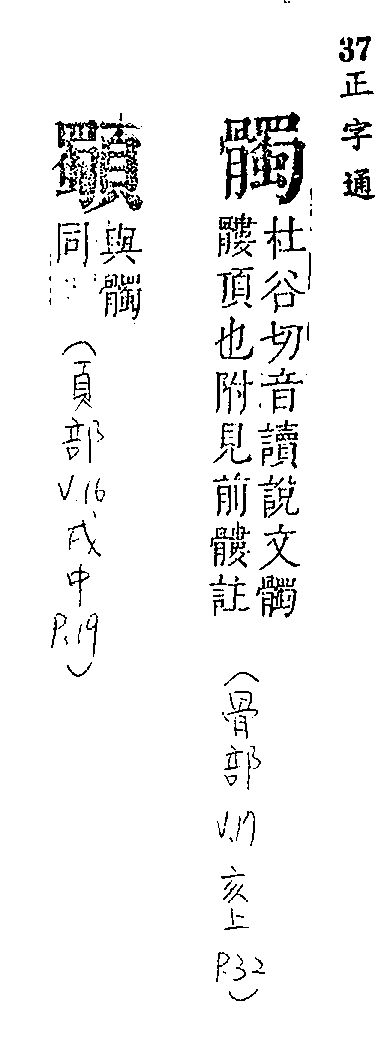 37正字通
髑
杜谷切音讀說文髑
髏頂也附見前髏註
(骨部V.17亥上P.32)
顝
與髑
同
(頁部V.16戌中P.19)